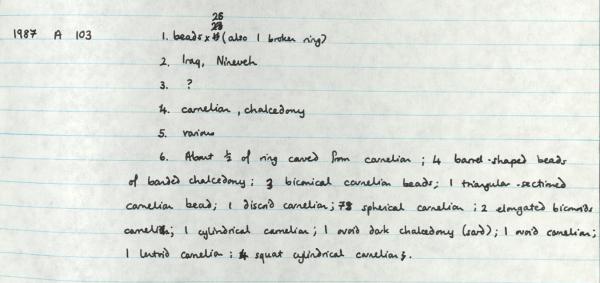 26
28
1987 A 103 1. beads x (also 1 broken ring)
2. Iraq, Nineveh
3. ?
4. carnelian, chalcedony
5. various
6. About ½ of ring carved from carnelian; 4 barrel-shaped beads
of banded chalcedony; 3 biconical carnelian beads; 1 triangular-sectioned
carnelian bead; 1 discoid carnelian; 78 spherical carnelian; 2 elongated biconoids
carnelian; 1 cylindrical carnelian; 1 ovoid dark chalcedony (sard); 1 ovoid carnelian;
1 lentoid carnelian; 4 squat cylindrical carnelians.